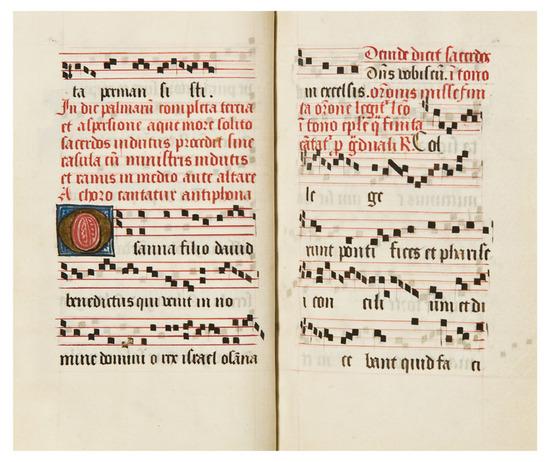 ta perman si sti.
In die palmarū completa tercia
et aspersione aque more solito
sacerdos indutus procedet sine
casula cū ministris indutis
et ramis in medio ante altare
A choro cantatur antiphona
Osanna filio david
benedictus qui venit in no
mine domini o rex israel osāna
Deinde dicit sacerdos
Dn̄s vobiscū. ī tono
in excelsis. orōnis misse fini
ta orōne legit͛ lc̄o
ī tono ep̄le q̄ finita
cātat͛ p̄ g͛duali R Col
le ge
runt ponti fices et pharise
i con cili um et di
ce bant quid fa ci